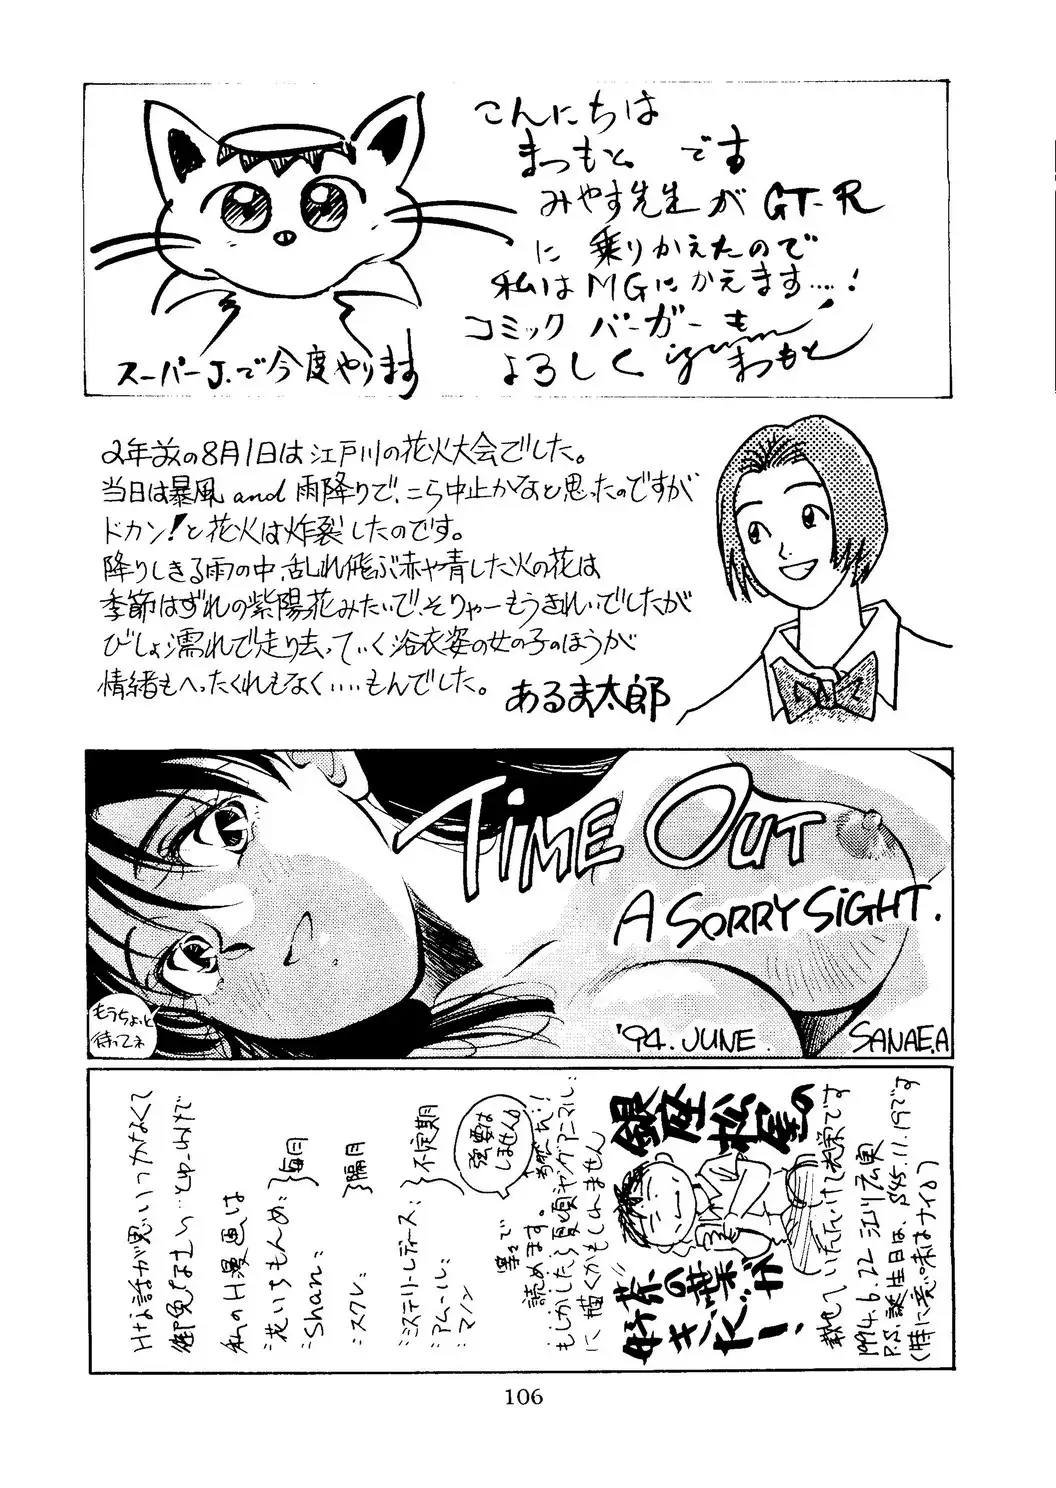 こんにちは
まつもと。です
みやす先生が GT-R
に 乗りかえたので
私は MGにかえます….!
コミック バーガーも
よろしく izumi まつもと
スーパーJ.で今度やります
2年前の8月1日は江戸川の花火大会でした。
当日は暴風 and 雨降りで、こら中止かなと思ったのですが
ドカン!と花火は炸裂したのです。
降りしきる雨の中、乱れ飛ぶ赤や青した火の花は
季節はずれの紫陽花みたいで、そりゃーもうきれいでしたが
びしょ濡れで走り去っていく浴衣姿の女の子のほうが
情緒もへったくれもなく‥‥もんでした。
あるま太郎
TIME OUT
A SORRY SIGHT.
もうちょっと
待ってネ
'94. JUNE.
SANAE.A
Hな話が思いつかなくて
御免なさい…とゆーわけで
私のH漫画は
花いちもんめ:
Shan:
}毎月
スクレ:
}隔月
ミステリトレディース:
アムール:
マノン
}不定期
強要は
しません。
等々で
読めます。
もしかしたら夏頃ヤングアニマル:
に描くかもしれません
銀座松屋の
載せていただいて光栄です
1994.6.22 江川広実
P.S.誕生日は、S45.11.19です
(特に意味はナイよ)
106